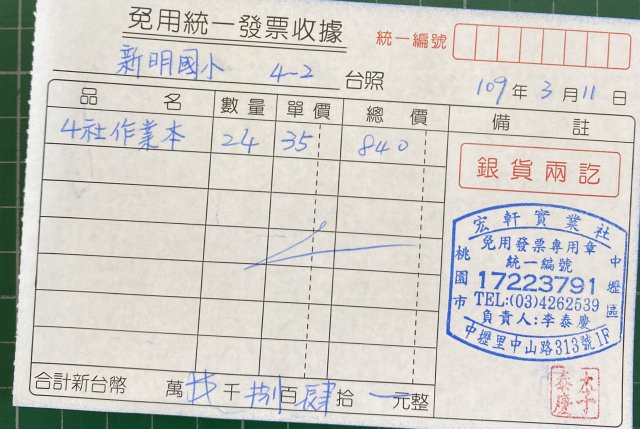 免用統一發票收據
統一編號
新明國小 4-2 台照
109年3月11日
品名 數量 單價 總價 備註
4社作業本 24 35 840
銀貨兩訖
宏軒實業社
免用發票專用章
統一編號
桃園市 17223791 中壢區
TEL:(03)4262539
負責人:李泰慶
中壢里中山路313號1F
合計新台幣 萬 千捌百肆拾 元整